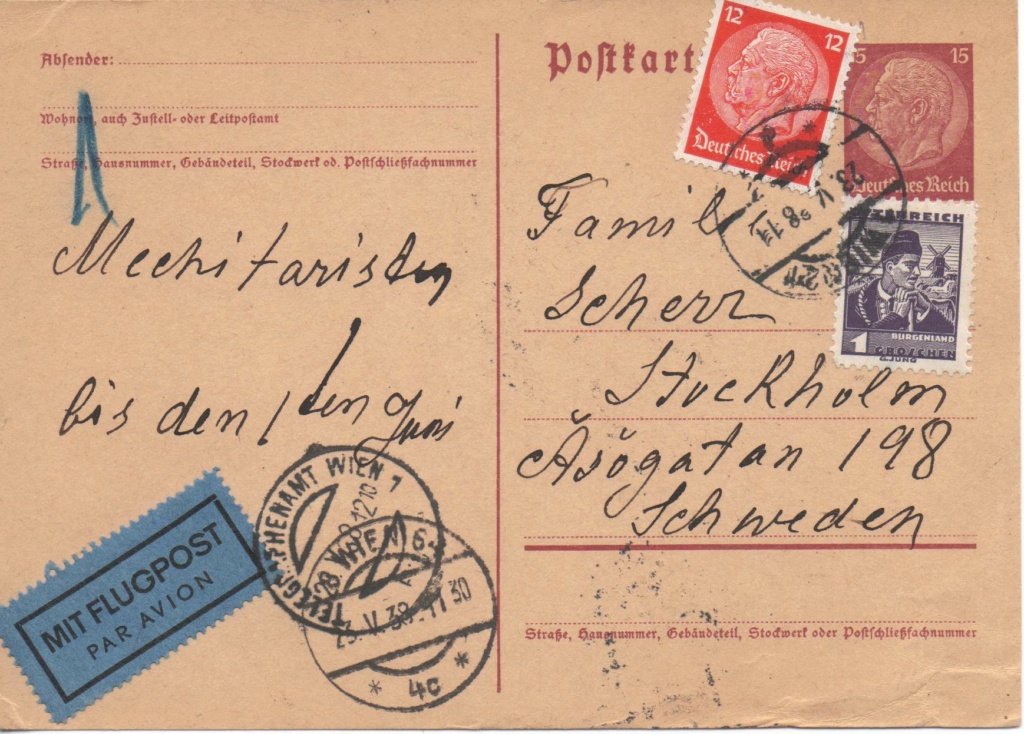 Absender:
Wohnort, auch Zustell- oder Leitpostamt
Straße, Hausnummer, Gebäudeteil, Stockwerk od. Postschließfachnummer
Mechitaristen
bis den 1 ten Juni
MIT FLUGPOST
PAR AVION
TELEGRAPHENAMT WIEN 1
WIEN 6
23.V.38.11 30
* 4c *
Postkart
12 12
Deutsches Reich
15 15
Deutsches Reich
23.V.38 11
WIEN
ÖSTERREICH
BURGENLAND
1 GROSCHEN
G.JUNG
Familie
Scherz
Stockholm
Åsögatan 198
Schweden
Straße, Hausnummer, Gebäudeteil, Stockwerk oder Postschließfachnummer